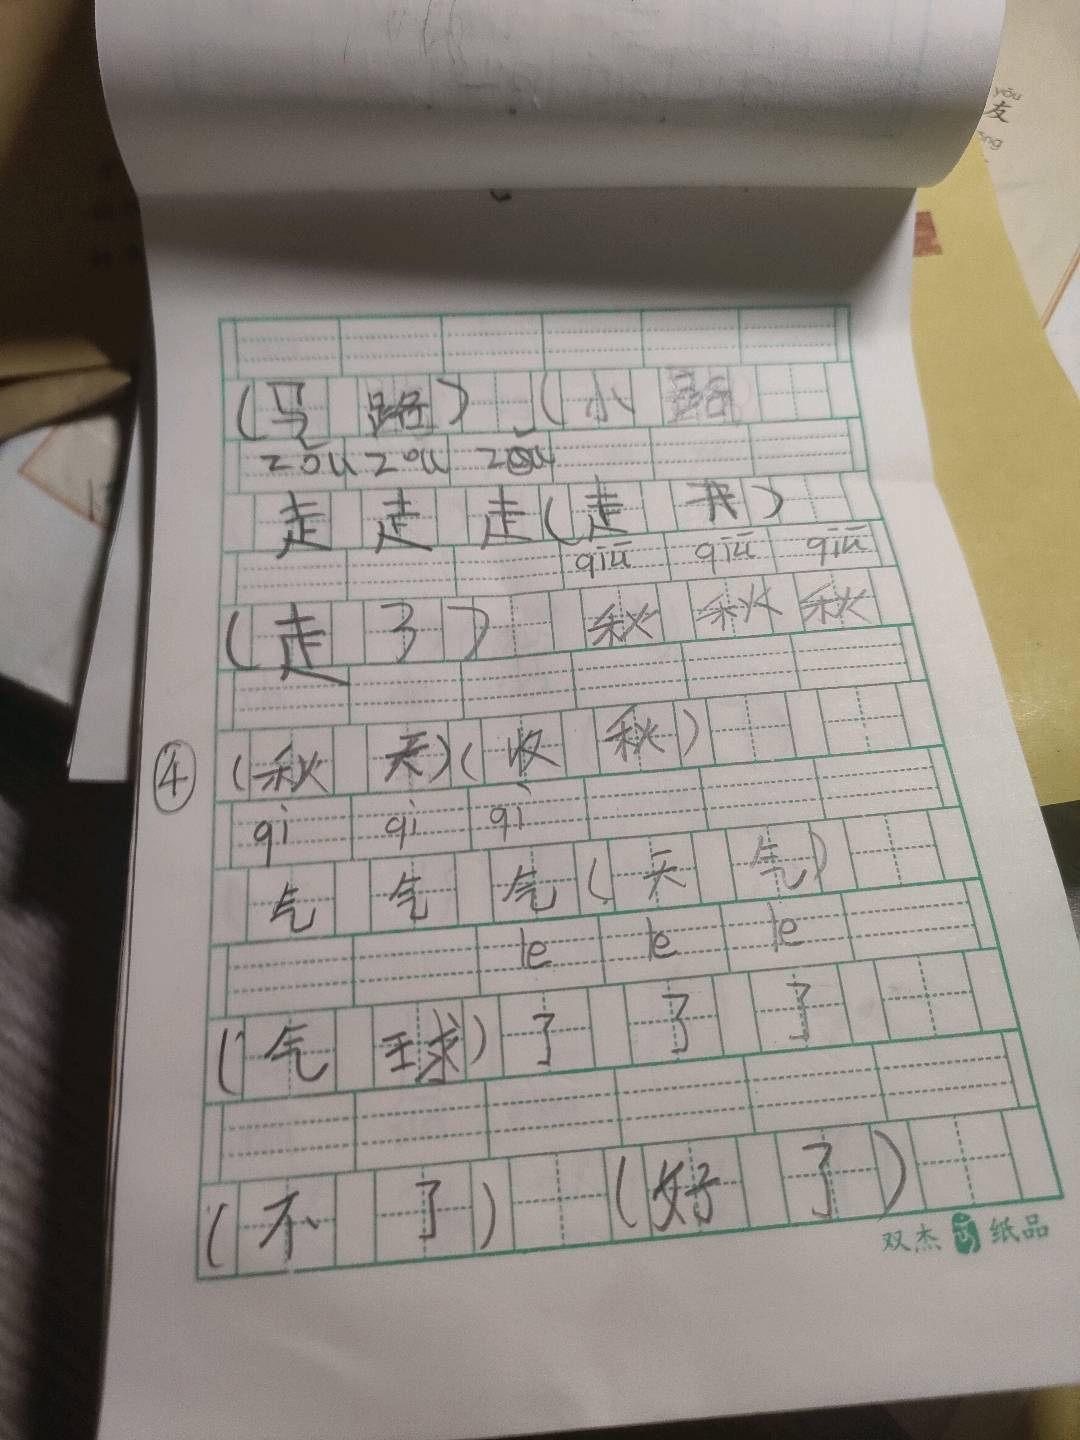 yǒu
友
(马路) (小路
zǒu zou zǒu
走 走 走 (走 开)
qiū qiū qiū
(走了) 秋 秋 秋
④
(秋天) (收秋)
qi qi qì
气 气 气 (天气)
le le le
(气球) 了 了 了
(不了) (好了)
双杰 纸品